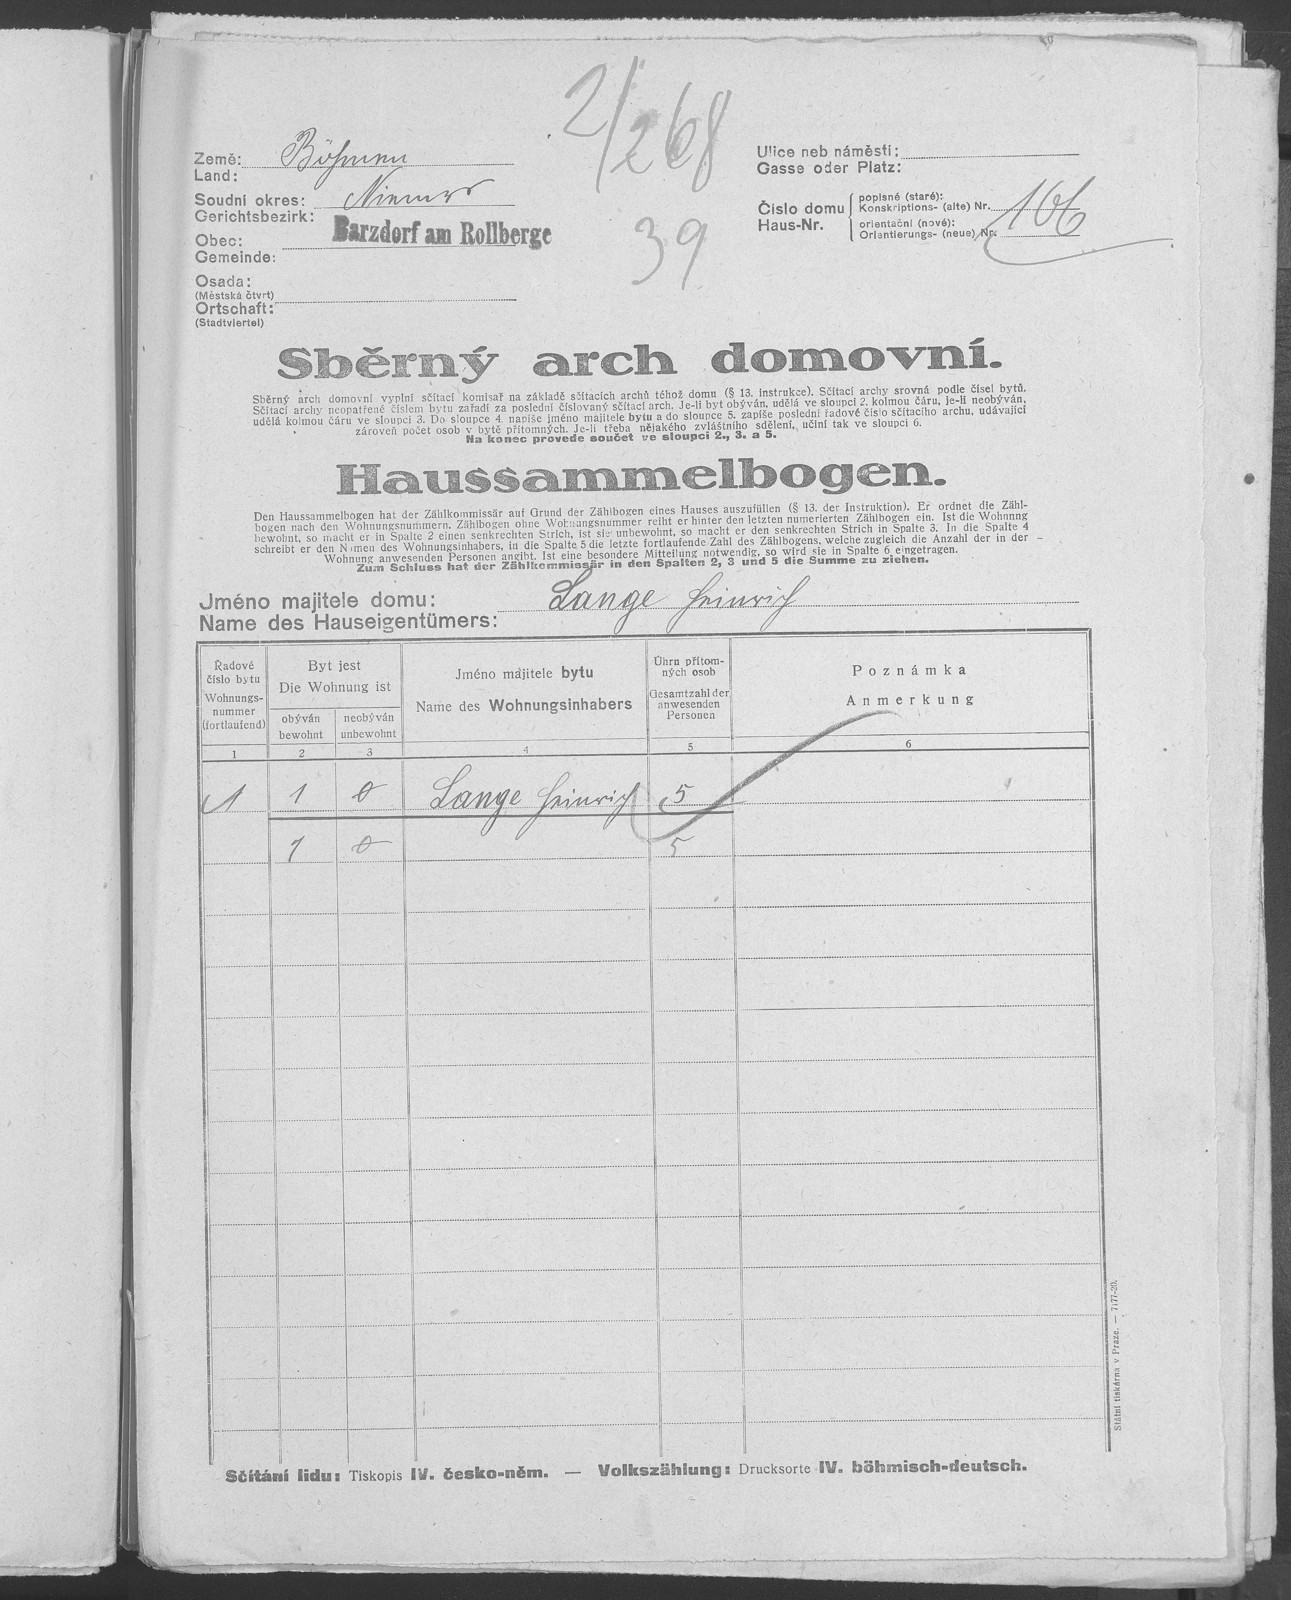 2/268
39
Země: Böhmen
Land:
Soudní okres: Niemes
Gerichtsbezirk:
Obec: Barzdorf am Rollberge
Gemeinde:
Osada:
(Městská čtvrt)
Ortschaft:
(Stadtviertel)
Ulice neb náměstí:
Gasse oder Platz:
Číslo domu popisné (staré):
Haus-Nr. Konskriptions- (alte) Nr. 106
orientační (nové):
Orientierungs- (neue) Nr.
Sběrný arch domovní.
Sběrný arch domovní vyplní sčítací komisař na základě sčítacích archů téhož domu (§ 13. instrukce). Sčítací archy srovná podle čísel bytů.
Sčítací archy neopatřené číslem bytu zařadí za poslední číslovaný sčítací arch. Je-li byt obýván, udělá ve sloupci 2. kolmou čáru, je-li neobýván,
udělá kolmou čáru ve sloupci 3. Do sloupce 4. napíše jméno majitele bytu a do sloupce 5. zapíše poslední řadové číslo sčítacího archu, udávající
zároveň počet osob v bytě přítomných. Je-li třeba nějakého zvláštního sdělení, učiní tak ve sloupci 6.
Na konec provede součet ve sloupci 2., 3. a 5.
Haussammelbogen.
Den Haussammelbogen hat der Zählkommissär auf Grund der Zählbogen eines Hauses auszufüllen (§ 13. der Instruktion). Er ordnet die Zähl-
bogen nach den Wohnungsnummern. Zählbogen ohne Wohnungsnummer reiht er hinter den letzten numerierten Zählbogen ein. Ist die Wohnung
bewohnt, so macht er in Spalte 2 einen senkrechten Strich, ist sie unbewohnt, so macht er den senkrechten Strich in Spalte 3. In die Spalte 4
schreibt er den Namen des Wohnungsinhabers, in die Spalte 5 die letzte fortlaufende Zahl des Zählbogens, welche zugleich die Anzahl der in der
Wohnung anwesenden Personen angibt. Ist eine besondere Mitteilung notwendig, so wird sie in Spalte 6 eingetragen.
Zum Schluss hat der Zählkommissär in den Spalten 2, 3 und 5 die Summe zu ziehen.
Jméno majitele domu: Lange Heinrich
Name des Hauseigentümers:
Řadové číslo bytu
Wohnungs-nummer (fortlaufend)
Byt jest
Die Wohnung ist
obýván
bewohnt
neobýván
unbewohnt
Jméno majitele bytu
Name des Wohnungsinhabers
Úhrn přítom-ných osob
Gesamtzahl der anwesenden Personen
Poznámka
Anmerkung
1 2 3 4 5 6
1 1 0 Lange Heinrich 5
1 0 5
Státní tiskárna v Praze. — 7177-20.
Sčítání lidu: Tiskopis IV. česko-něm. — Volkszählung: Drucksorte IV. böhmisch-deutsch.